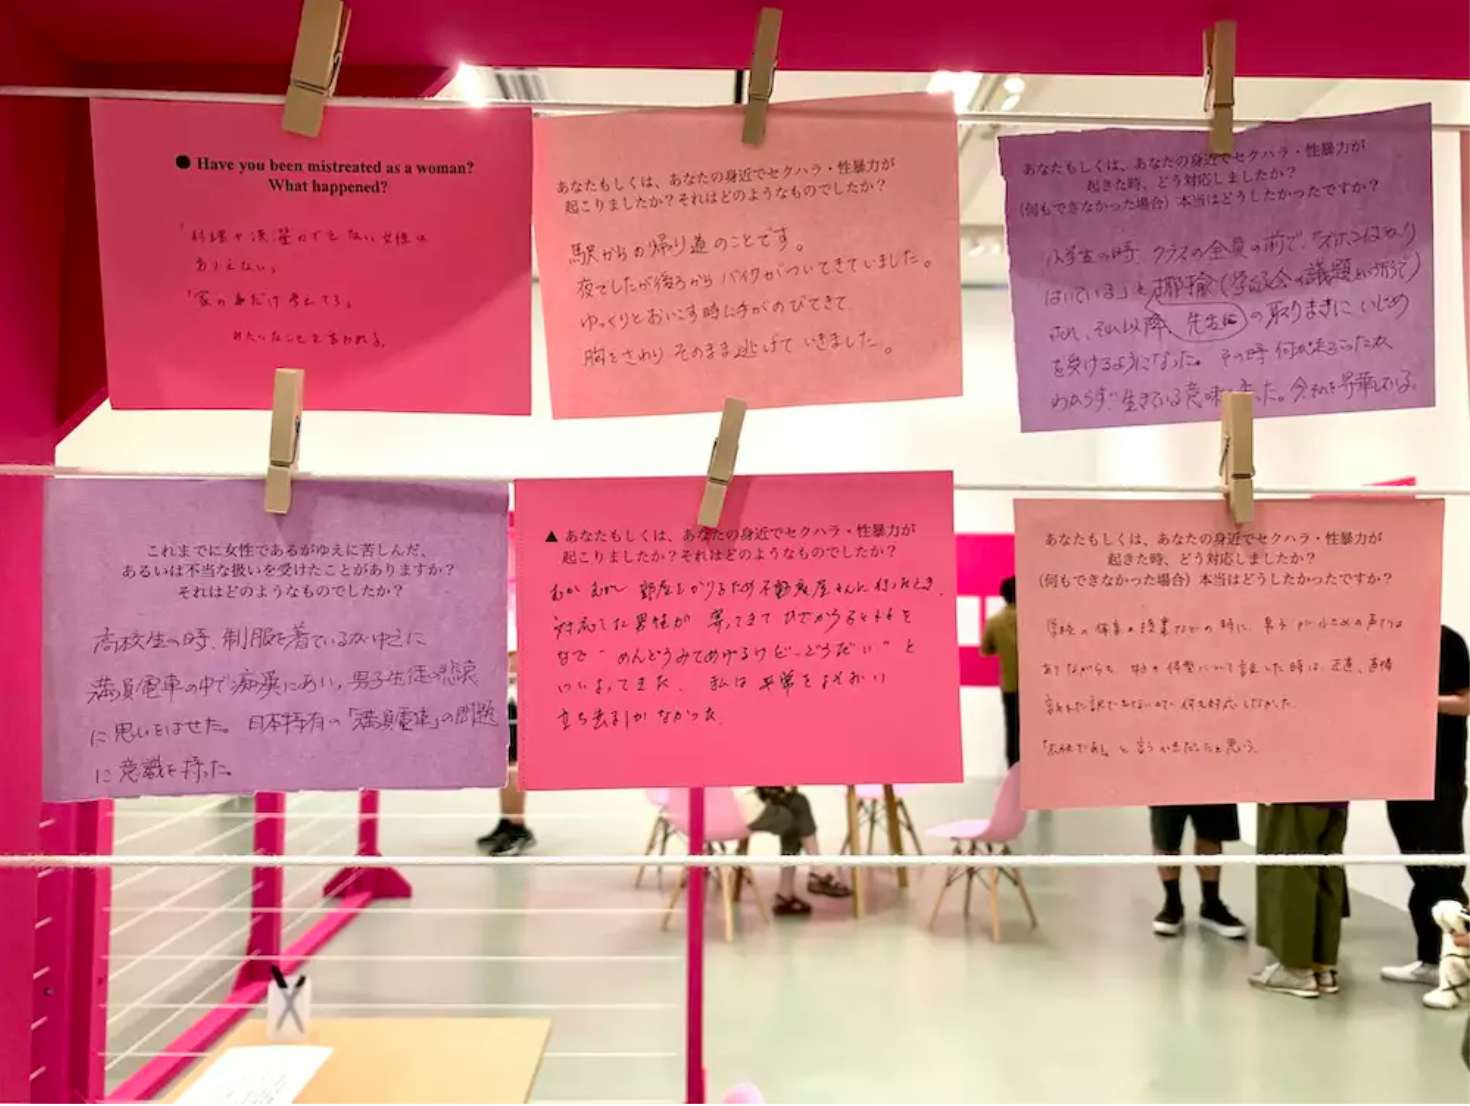 ● Have you been mistreated as a woman?
What happened?
「料理や洗濯のできない女性は
ありえない」
「家の事だけ考えてろ」
みたいなことを言われる。
あなたもしくは、あなたの身近でセクハラ・性暴力が
起こりましたか？それはどのようなものでしたか？
駅からの帰り道のことです。
夜でしたが後ろからバイクがついてきていました。
ゆっくりとおいこす時に手がのびてきて
胸をさわりそのまま逃げていきました。
あなたもしくは、あなたの身近でセクハラ・性暴力が
起きた時、どう対応しましたか？
（何もできなかった場合）本当はどうしたかったですか？
小学生の時、クラスの全員の前で、「
はいている」と揶揄(学級会の議題という形で)
され、それ以降、先生 の取りまきにいじめ
を受けるようになった。その時 何が起こったか
わからず、生きている意味 った。今それを昇華している。
これまでに女性であるがゆえに苦しんだ、
あるいは不当な扱いを受けたことがありますか？
それはどのようなものでしたか？
高校生の時、制服を着ているがゆえに
満員電車の中で痴漢にあい、男子生徒の悲哀
に思いをはせた。日本特有の「満員電車」の問題
に意識を持った。
▲ あなたもしくは、あなたの身近でセクハラ・性暴力が
起こりましたか？それはどのようなものでしたか？
むかしむかし 部屋をかりるため不動産屋さんに行ったとき、
対応した男性が 寄ってきて ひざから を
なで "めんどうみてあげるけど…どうだい" と
いいよってきた。私は 平常をよそおい
立ち去るしかなかった。
あなたもしくは、あなたの身近でセクハラ・性暴力が
起きた時、どう対応しましたか？
（何もできなかった場合）本当はどうしたかったですか？
学校の体育の授業などの時に、男子が 声では
ありながらも、女子の体型について話した時は、正直、直接
言われた訳でもないので何も対応しなかった。
と言うべきだったと思う。